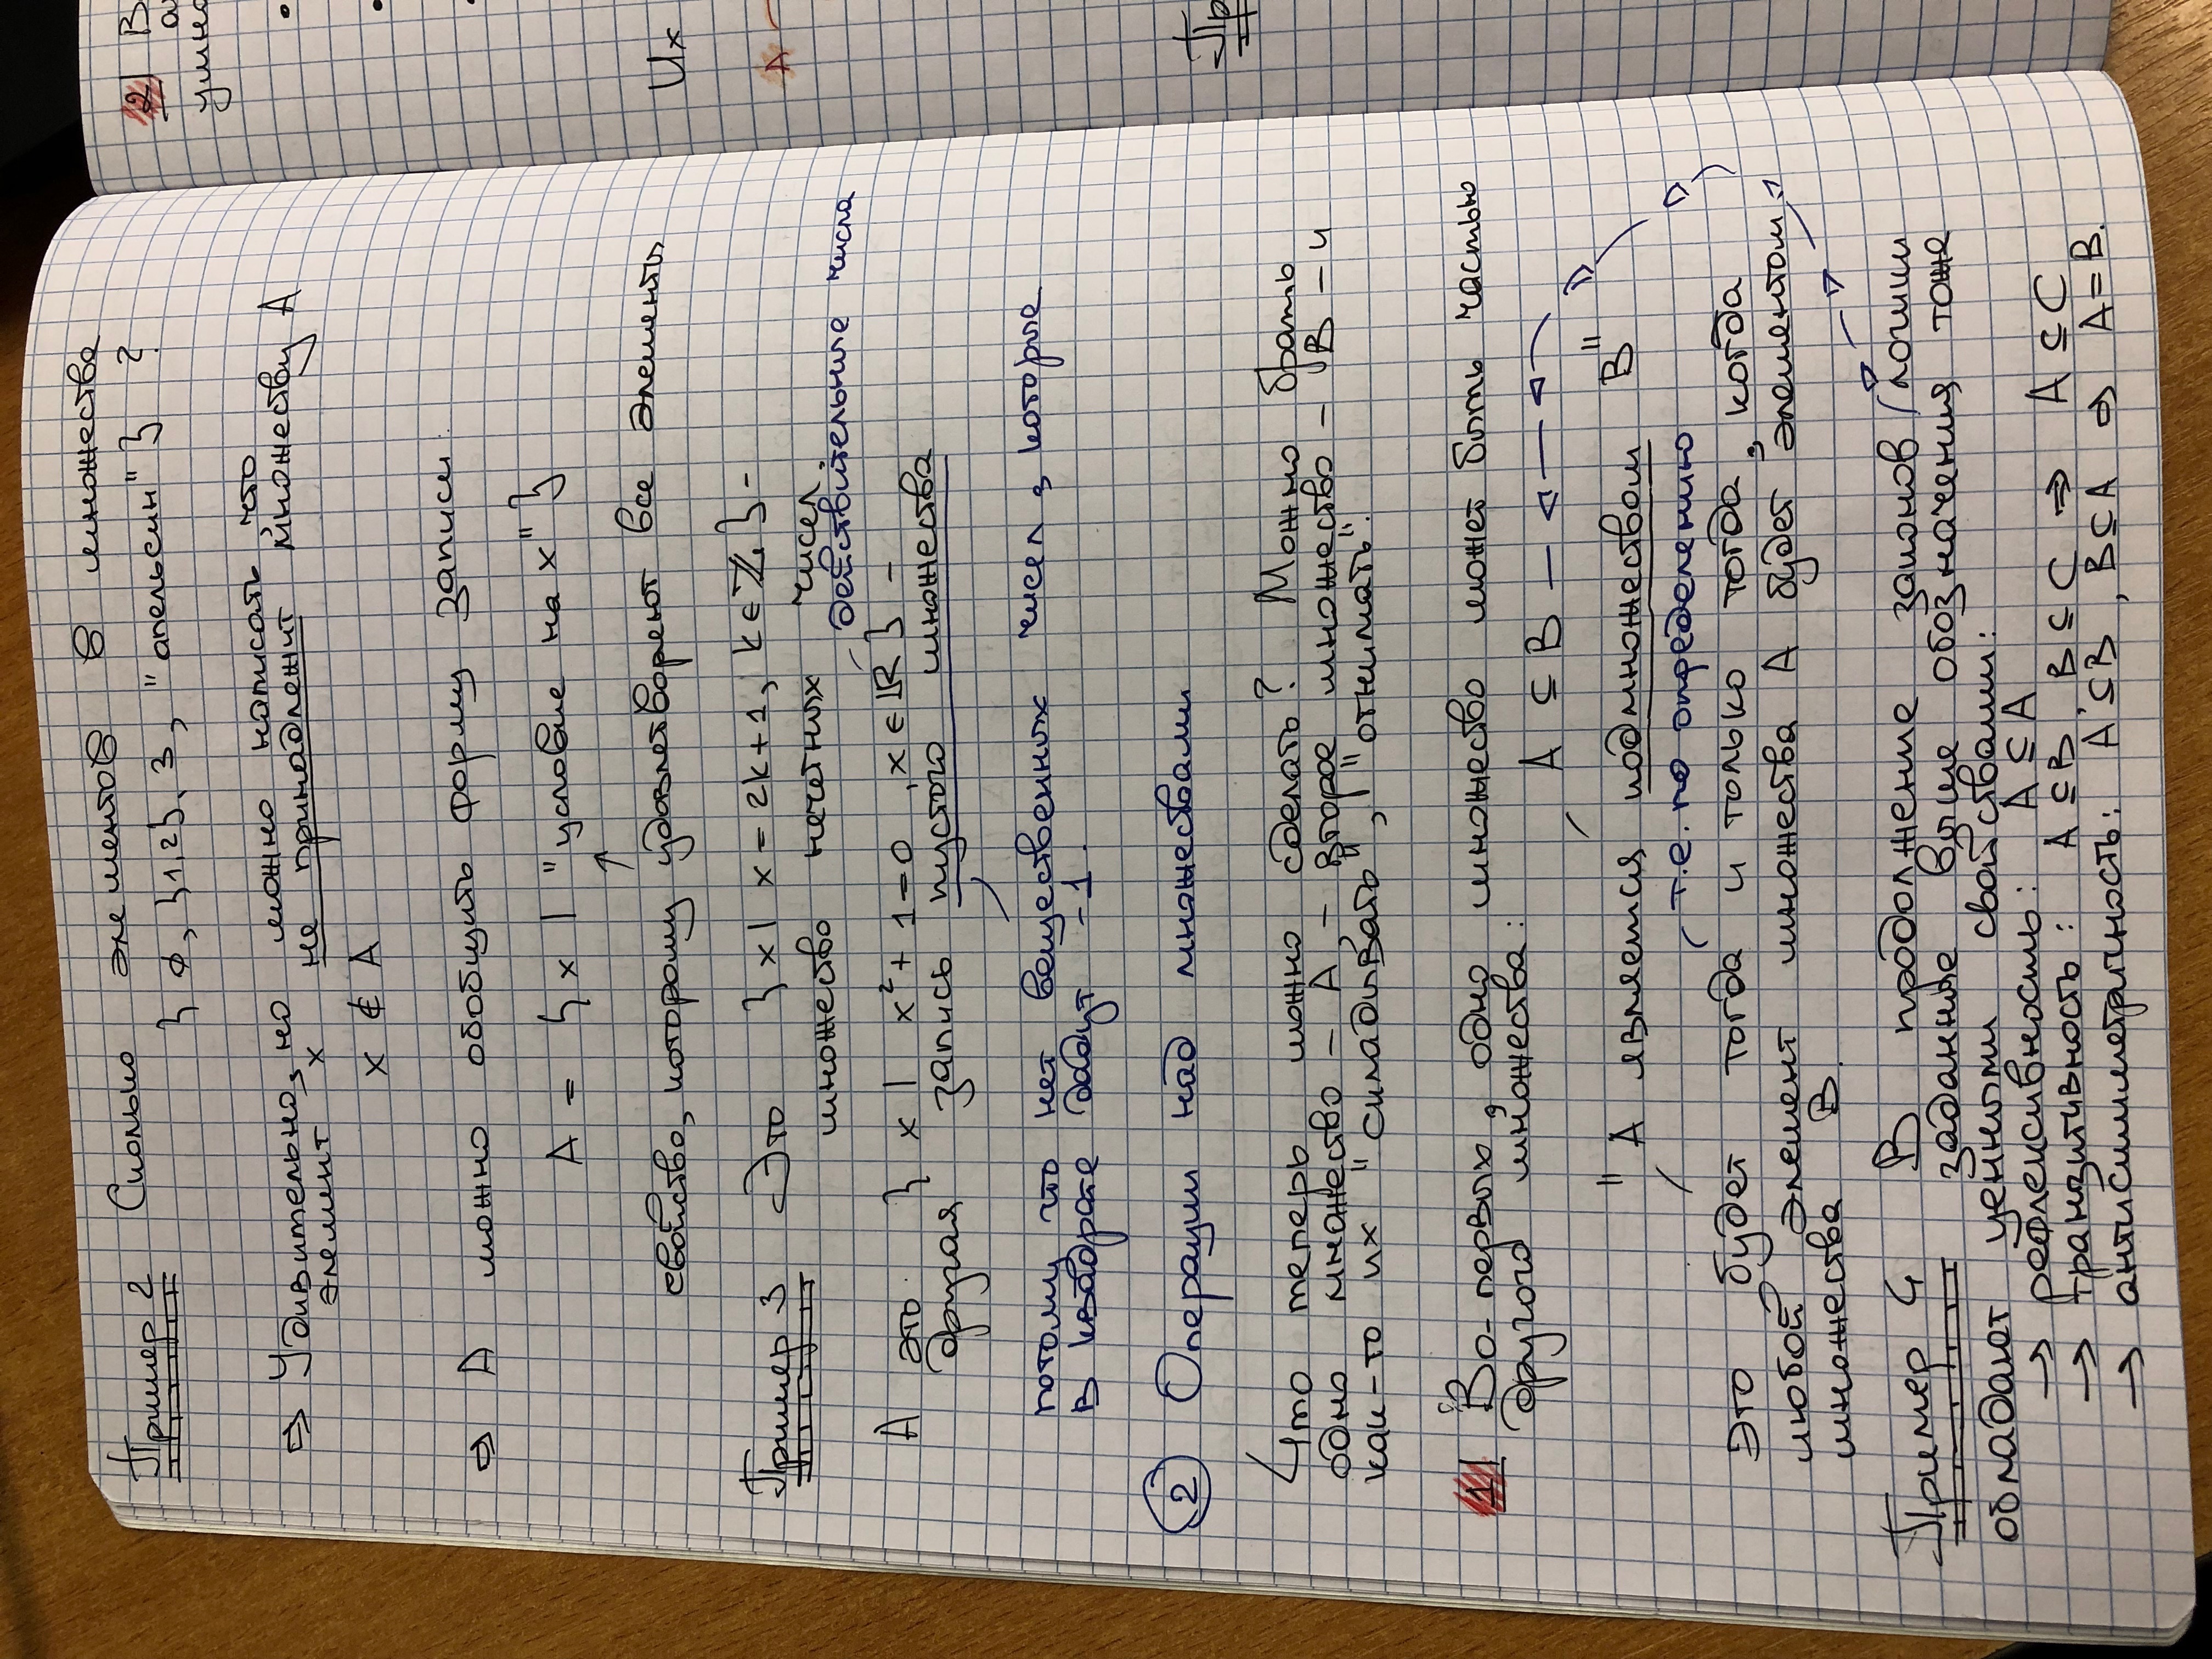 Пример 2 Сколько элементов в множества
{ ∅, {1,2}, 3, "апельсин" } ?
⇒ Удивительно, но можно написать, что
элемент x не принадлежит множеству A
x ∉ A
⇒ А можно обобщить форму записи:
A = { x | "условие на x" }
↑
свойство, которому удовлетворяют все элементы
Пример 3 Это { x | x = 2k+1, k ∈ ℤ } -
множество нечетных чисел.
действительные числа
А это { x | x² + 1 = 0, x ∈ ℝ } -
другая запись пустого множества
потому что нет вещественных чисел, которые
в квадрате дадут -1.
2 Операции над множествами
Что теперь можно сделать? Можно брать
одно множество - A, - второе множество - B - и
как-то их "складывать", "отнимать".
1) Во-первых, одно множество может быть частью
другого множества:
A ⊆ B
"A является подмножеством B"
т.е. по определению
Это будет тогда и только тогда, когда
любой элемент множества A будет элементом
множества B.
Пример 4 В продолжение законов логики
заданные выше обозначения тоже
обладают ценными свойствами:
→ рефлексивность: A ⊆ A
→ транзитивность: A ⊆ B, B ⊆ C ⇒ A ⊆ C
→ антисимметричность: A ⊆ B, B ⊆ A ⇒ A = B.
2) В
умно
Их
A
Пр